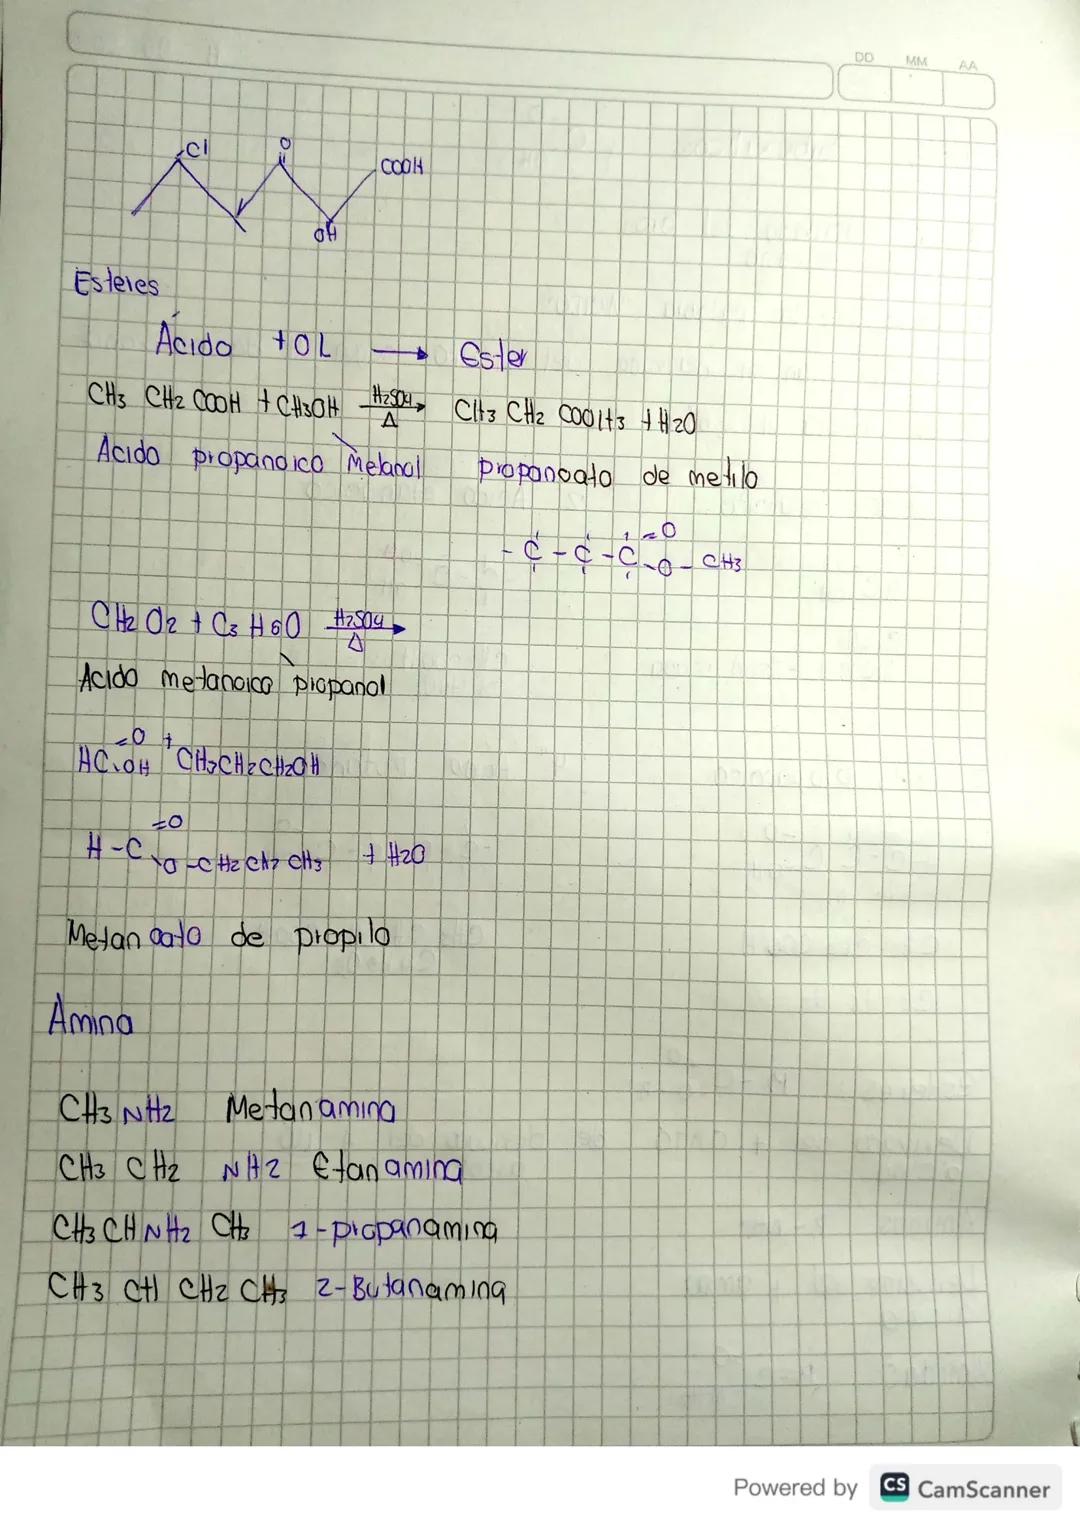 DD MM AA
Cl O COOH
OH
Esteres
Ácido + OL → Ester
CH3 CH2 COOH + CH3OH H2SO4 Δ → CH3 CH2 COOCH3 + H2O
Acido propanoico Metanol propanoato de metilo
- C - C - C =O -O- CH3
CH2 O2 + C3 H6O H2SO4 Δ →
Acido metanoico propanol
HC =O OH + CH3CH2CH2OH
H - C =O \O - CH2 CH2 CH3 + H2O
Metan oato de propilo
Amina
CH3 NH2 Metanamina
CH3 CH2 NH2 Etanamina
CH3 CH NH2 CH3 1-propanamina
CH3 CH CH2 CH3 2-Butanamina
Powered by CS CamScanner